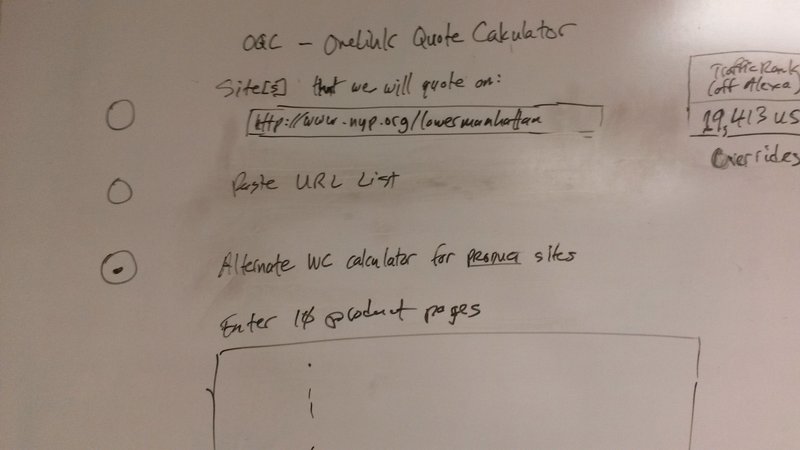 OQC - OneLink Quote Calculator
Site[s] that we will quote on:
http://www.nyp.org/lowermanhattan
Paste URL List
Alternate WC calculator for product sites
Enter 10 product pages
Traffic Rank
(off Alexa)
19,413 US
Overrides